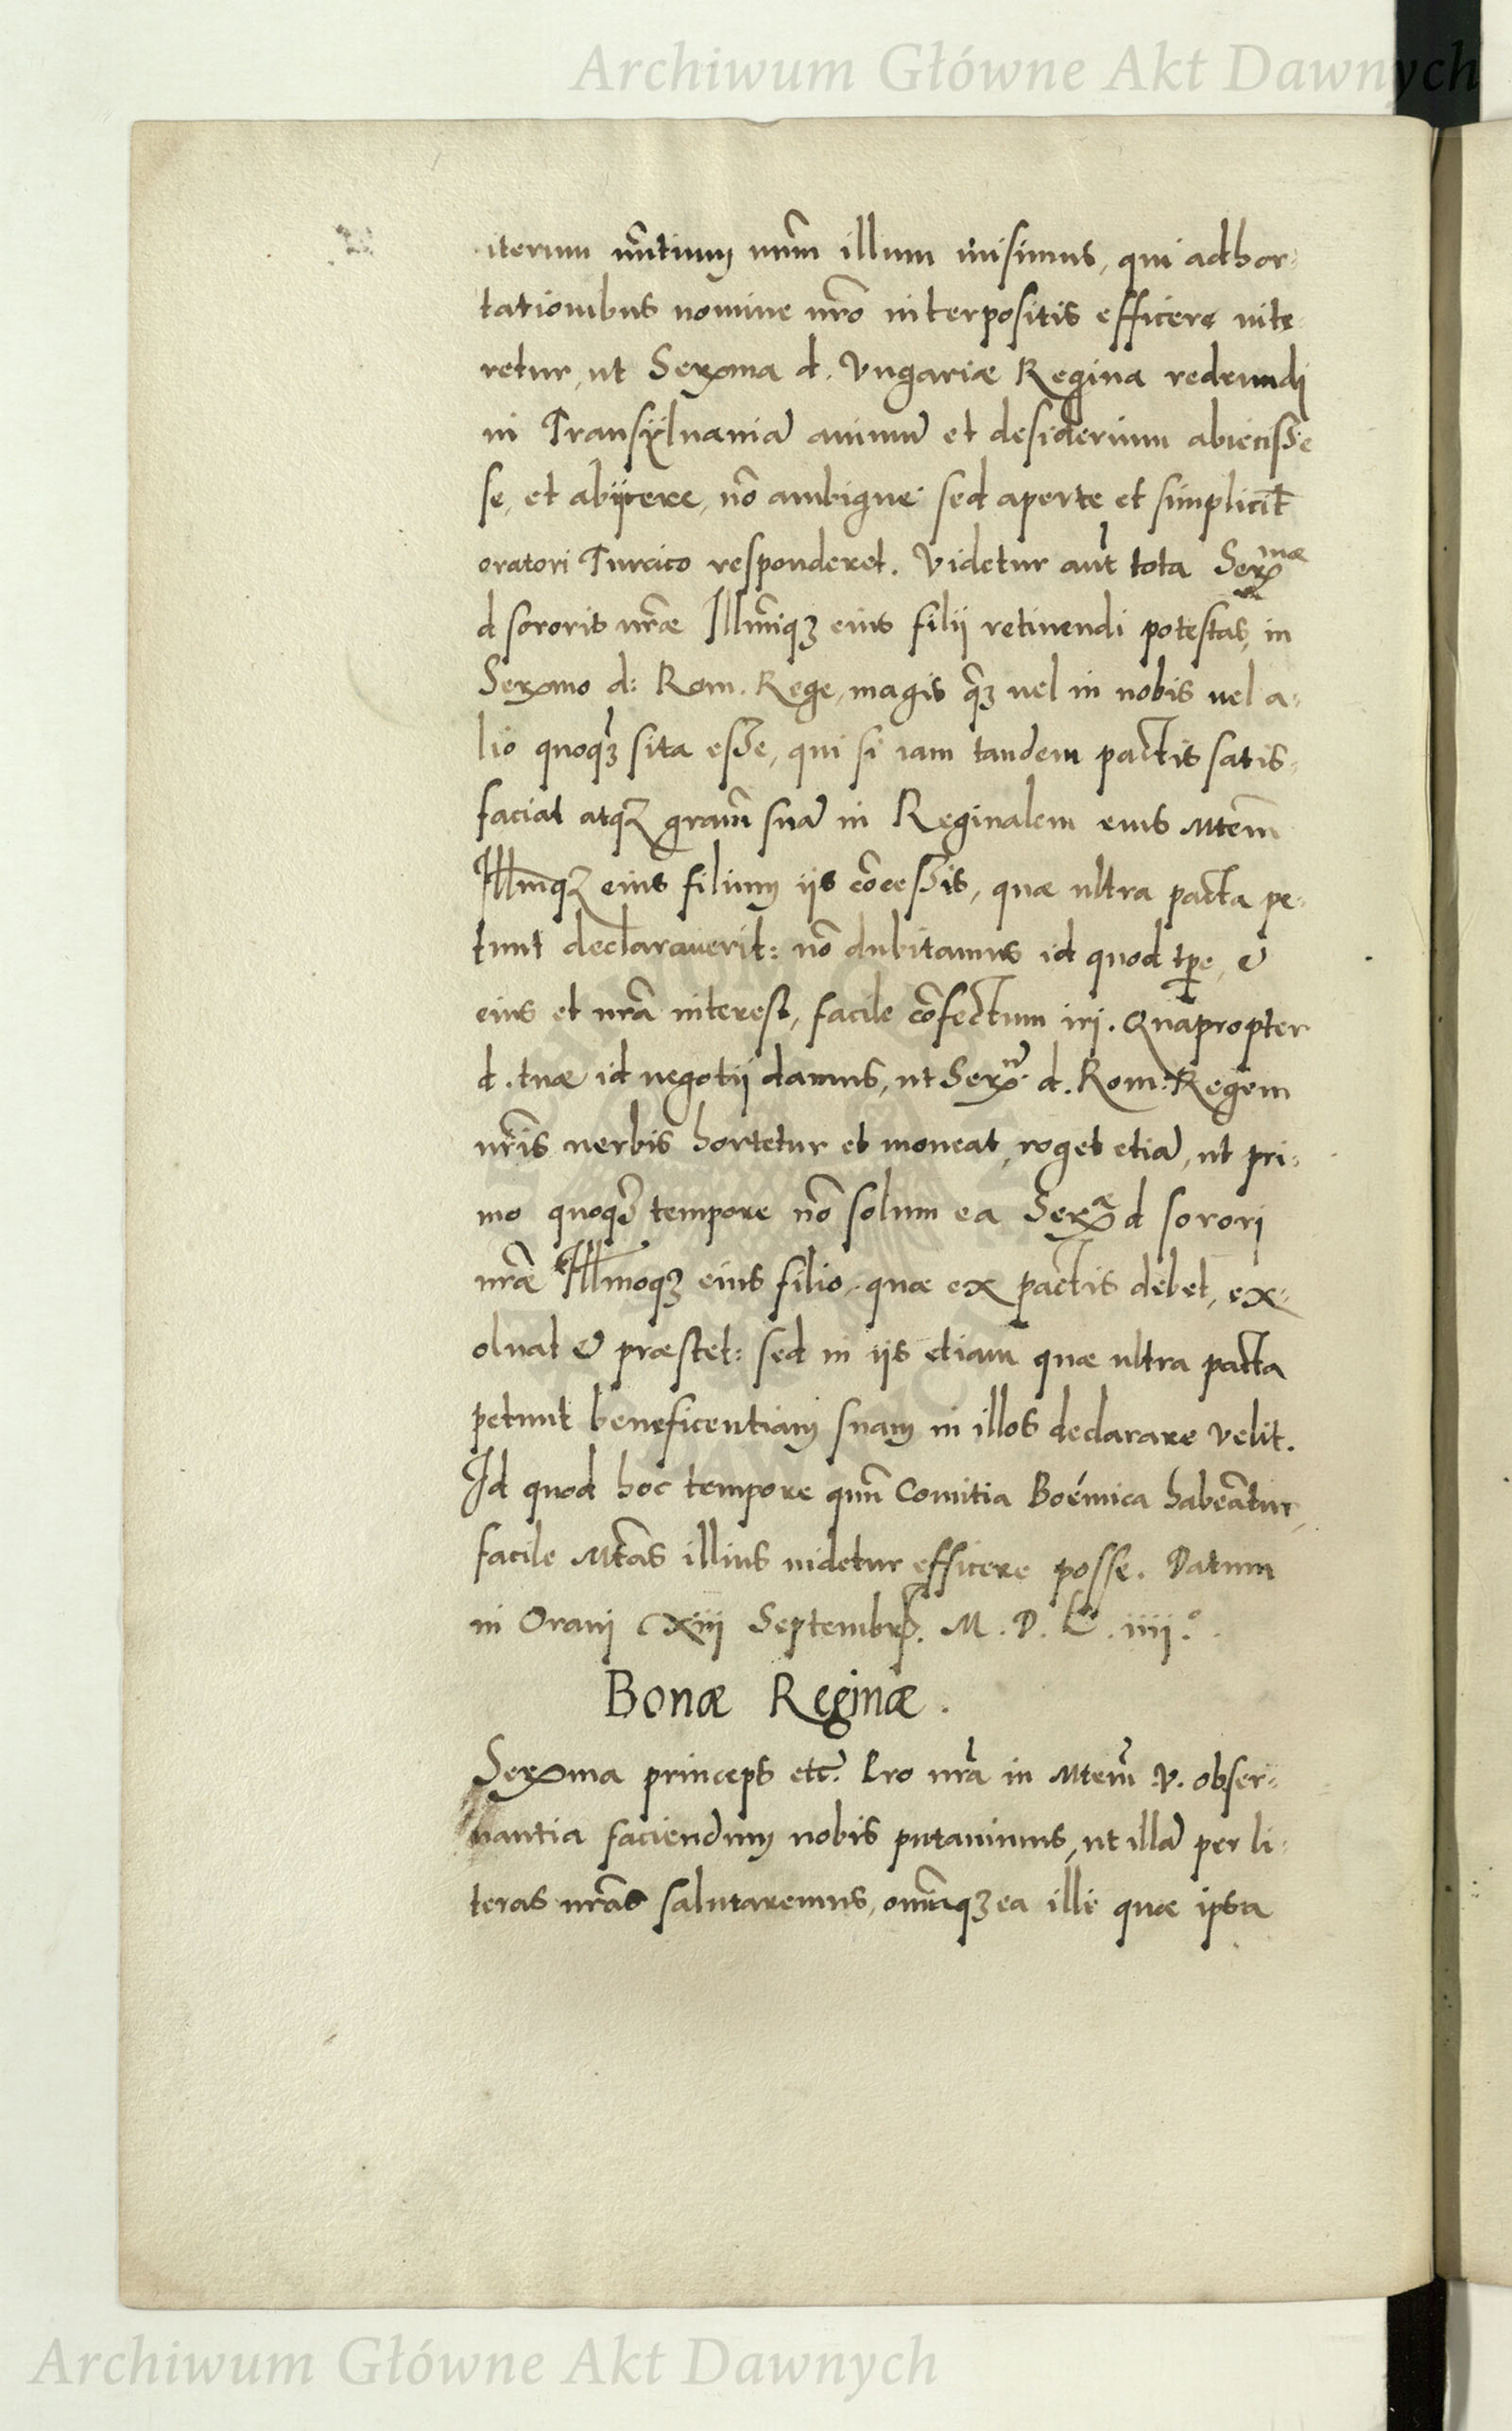 Archiwum Główne Akt Dawnych
iterum nũtium nrm̃ illum misimus, qui adhor-
tationibus nomine nrõ interpositis efficere nite-
retur, ut Serma d. Vngariæ Regina redeundi
in Transÿluaniã animũ et desiderium abiecisse
se, et abijcere, nõ ambigue sed aperte et simplicit̃
oratori Turcico responderet. Videtur aut̃ tota Ser^mæ
d sororis nr̃æ Illm̃iqꝫ eius filij retinendi potestas, in
Sermo d: Rom. Rege, magis q̃ꝫ uel in nobis uel a-
lio quoqꝫ̃ sita esse, qui si iam tandem pactis satis-
faciat atqꝫ gram̃ suã in Reginalem eius Mtem̃
Illm̃qꝫ eius filium ijs cõcessis, quæ ultra pacta pe-
tunt declarauerit: nõ dubitamus id quod tꝑe, &
eius et nrã interest, facile cõfectum iri. Quapropter
d. tuæ id negotij damus, ut Ser^m̃. d. Rom: Regem
nrĩs uerbis hortetur et moneat, roget etiã, ut pri-
mo quoqꝫ tempore nõ solum ea Ser^æ d sorori
nræ̃ Illmoqꝫ eius filio, quæ ex pactis debet, ex-
oluat & præstet: sed in ijs etiam quæ ultra pacta
petunt beneficentiam suam in illos declarare velit.
Id quod hoc tempore quum̃ Comitia Boémica habeãtur,
facile Mtãs illius uidetur efficere posse. Datum
in Orani Xiij Septembrꝭ. M. D. L. iiij.°
Bonæ Reginæ.
Serma princeps etc̃. Pro nrã in Mtem̃ .V. obser-
uantia faciendum nobis putauimus, ut illã per li-
teras nrãs salutaremus, omĩaqꝫ ea illi quæ ipsa
Archiwum Główne Akt Dawnych